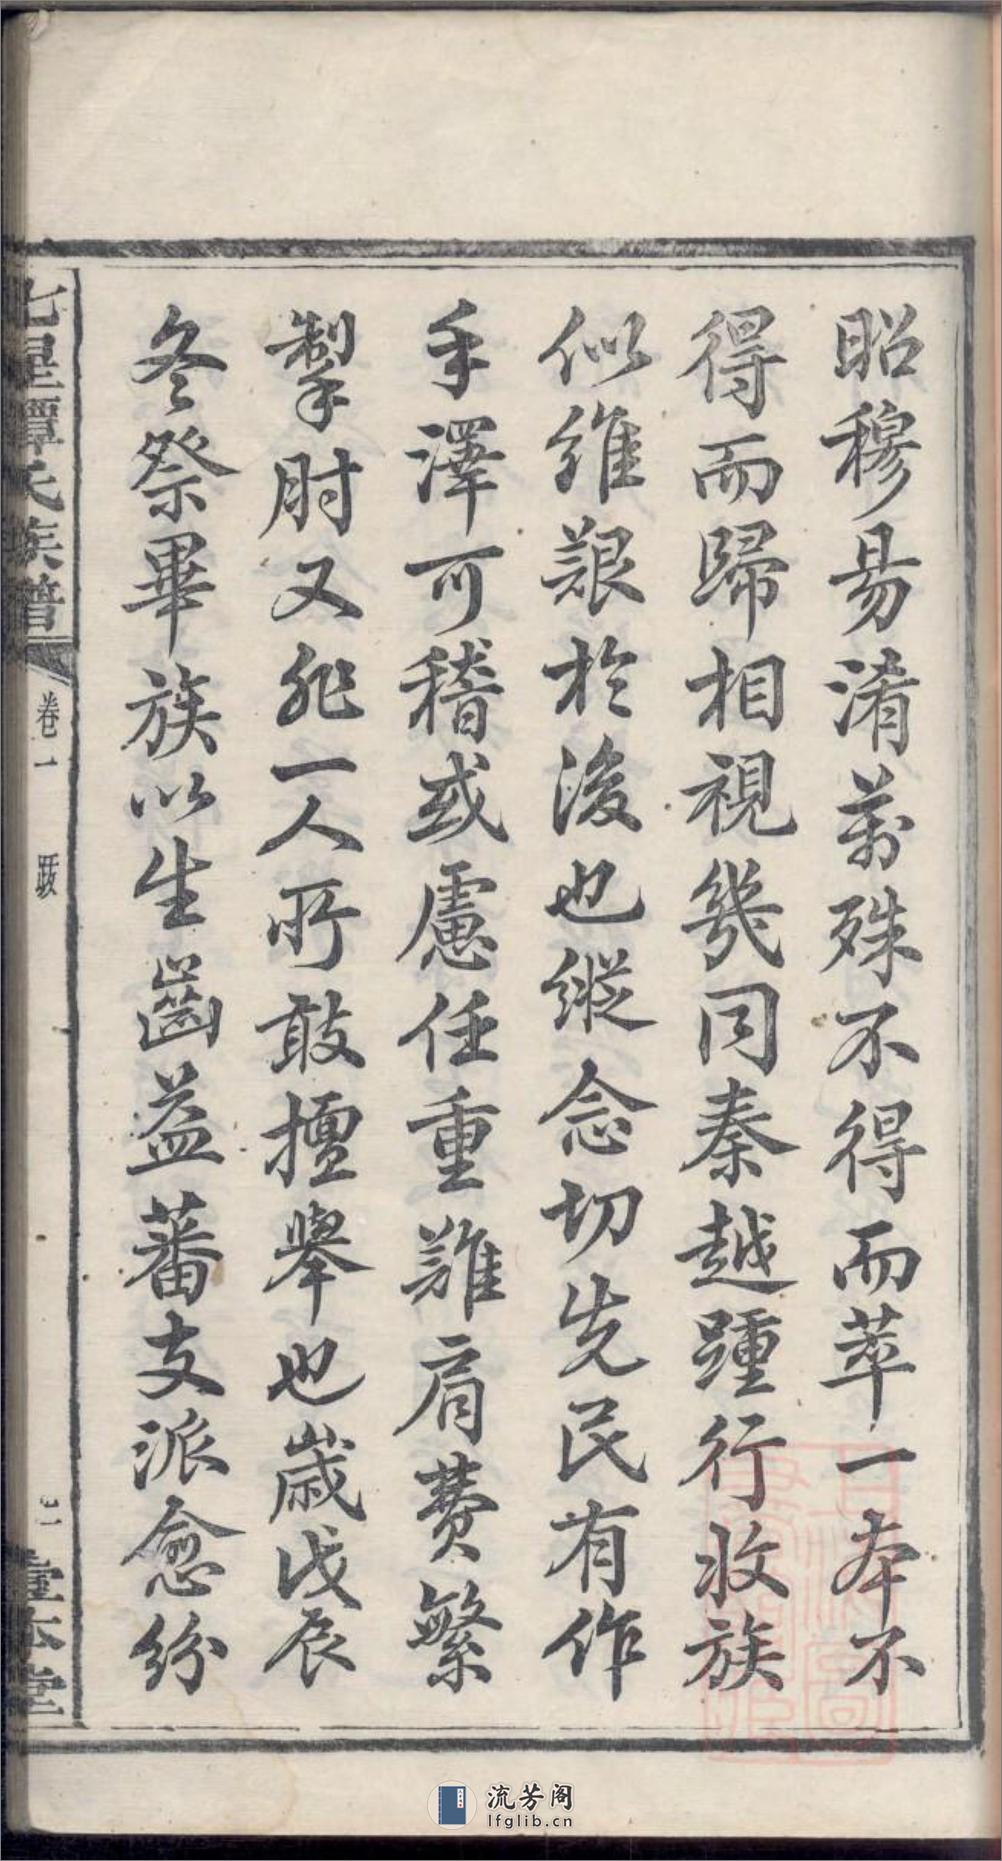 昭穆易淆萬殊不得而萃一本不
得而歸相視幾同秦越踵行收族
似維艱於後也縱念切先民有作
手澤可稽或慮任重難肩費繁
掣肘又非一人所敢擅舉也歲戊辰
冬祭畢族以生齒益蕃支派愈紛
七星譚氏族譜
卷一
跋
壹本堂
流芳阁
lfglib.cn